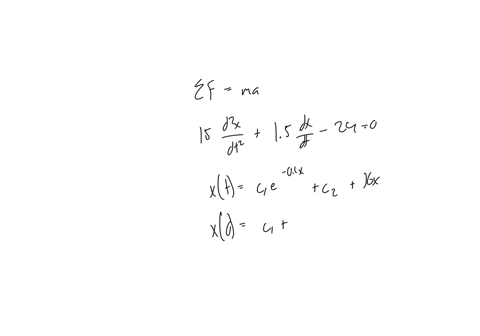 ΣF = ma
15 d²x/dt² + 1.5 dx/dt - 24 = 0
x(t) = c₁e^(-0.1x) + c₂ + 16x
x(0) = c₁ +